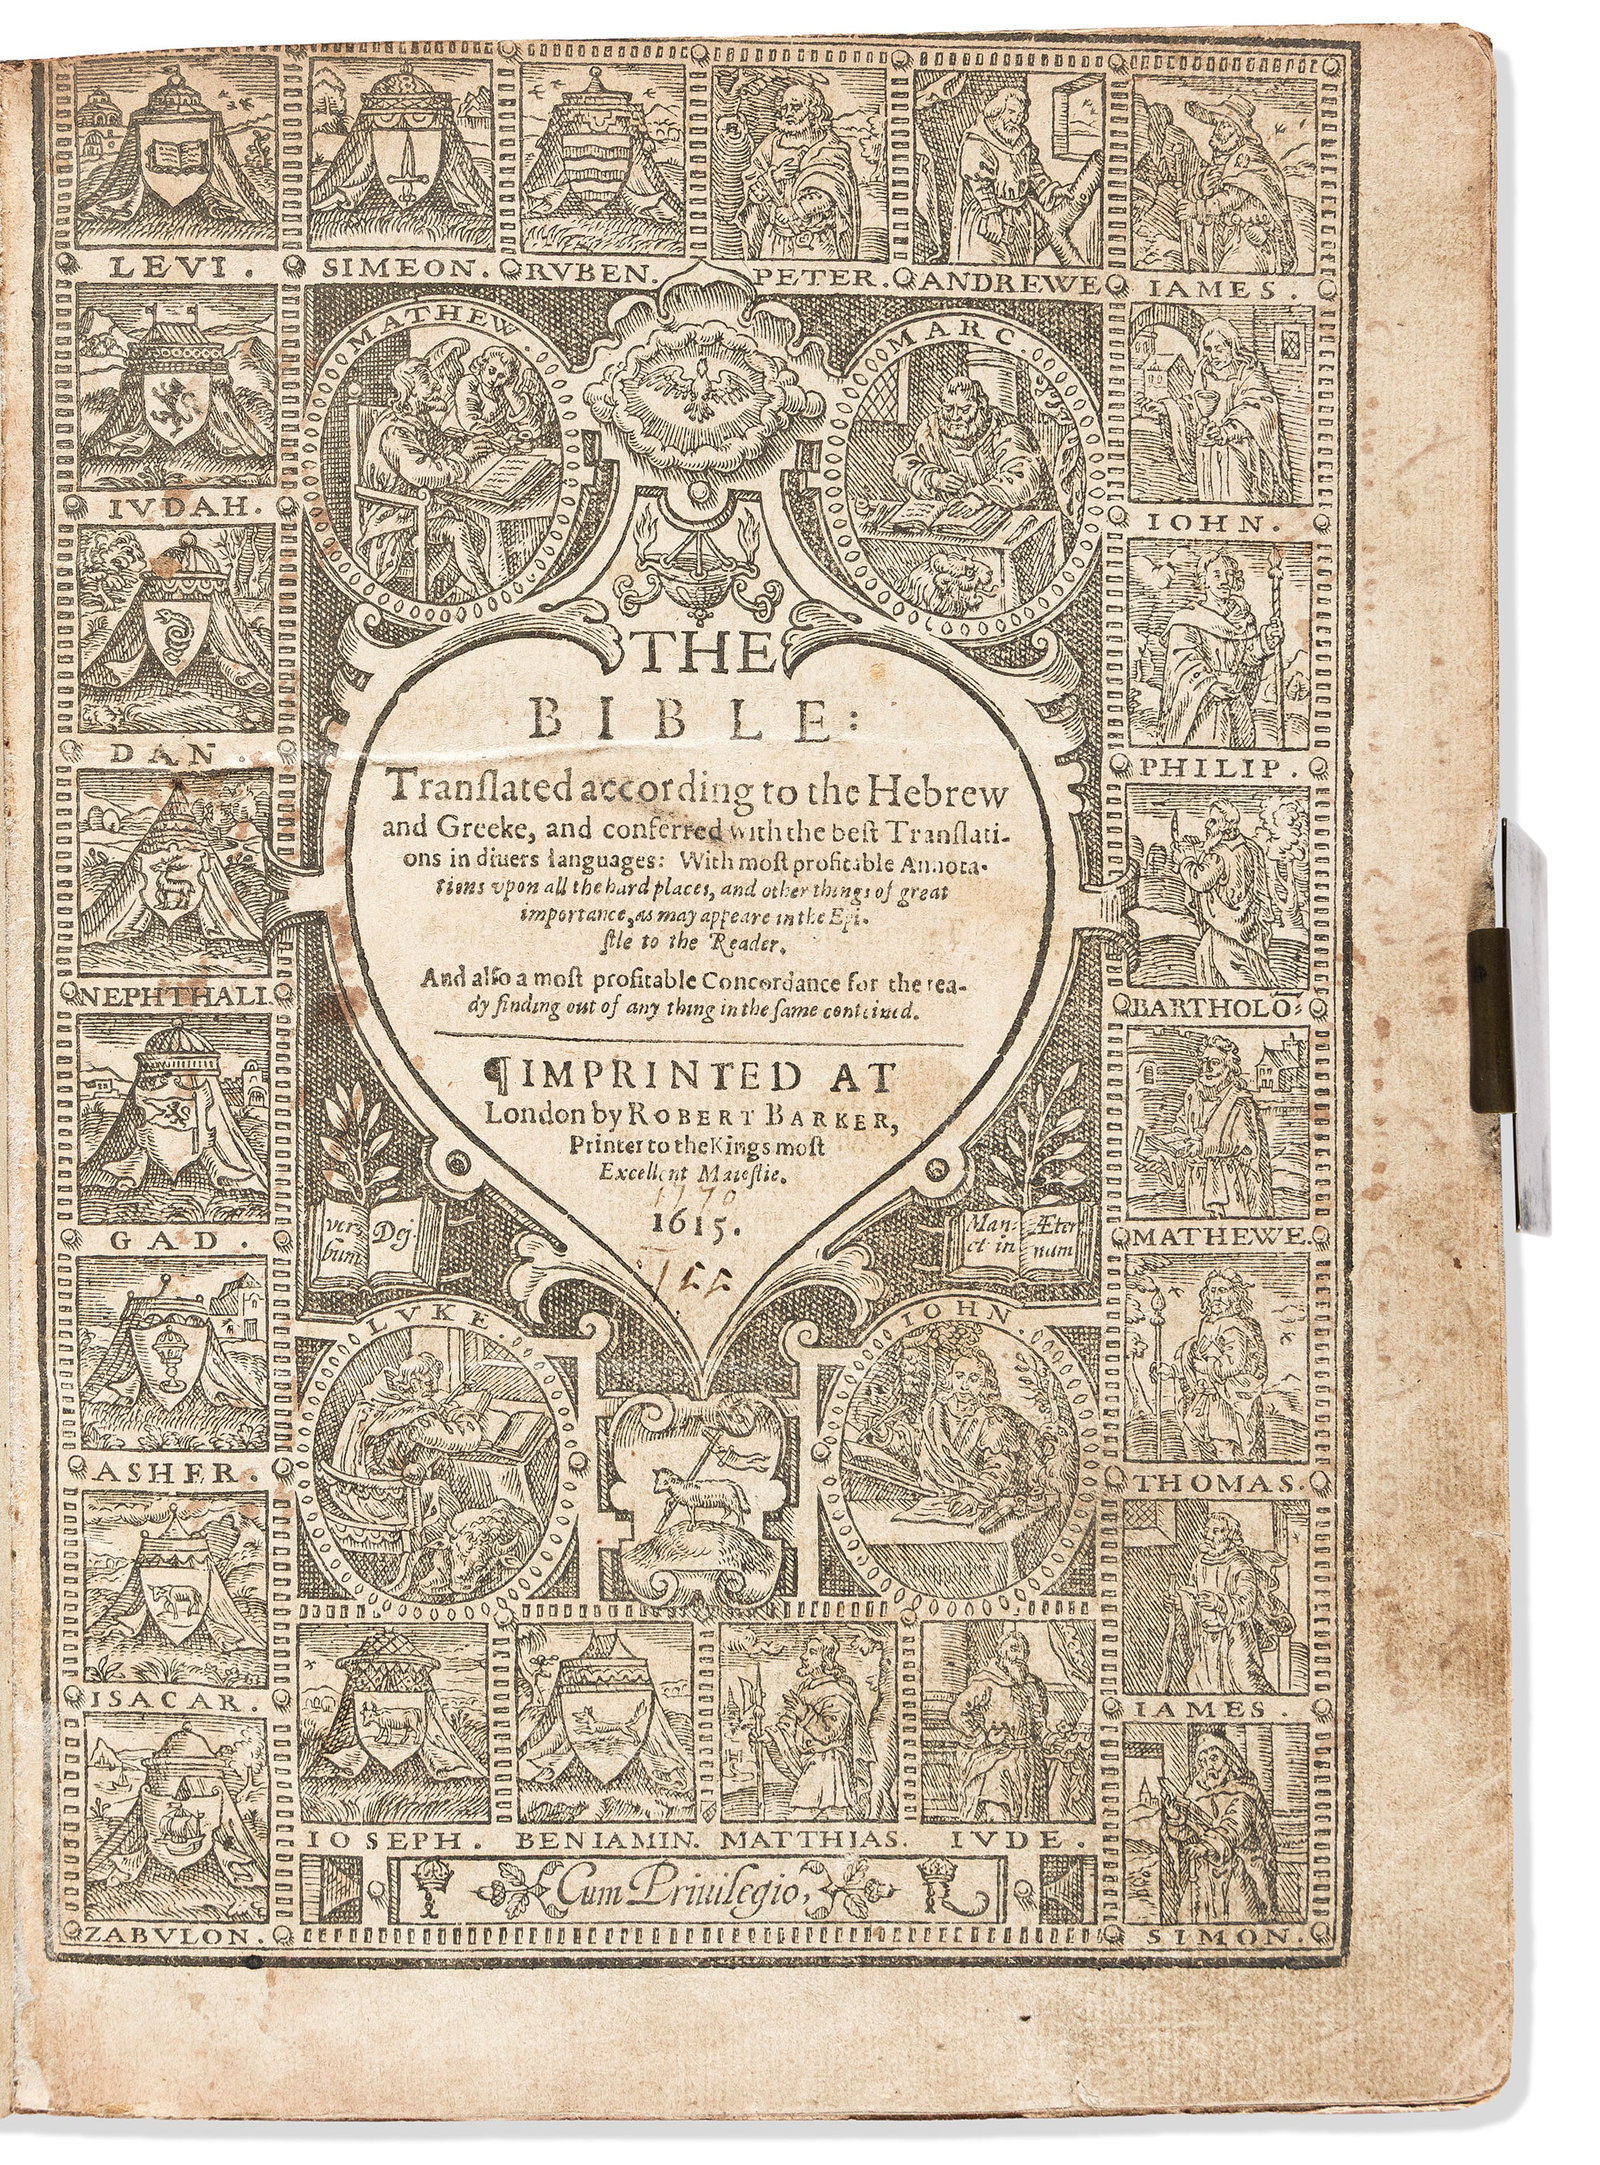 LEVI.
SIMEON.
RVBEN.
PETER.
ANDREWE
IAMES.
MATHEW.
MARC.
IVDAH.
IOHN.
DAN
PHILIP.
NEPHTHALI.
BARTHOLŌ:
THE
BIBLE:
Tranſlated according to the Hebrew
and Greeke, and conferred with the beſt Tranſlati-
ons in diuers languages: With moſt profitable Annota-
tions vpon all the hard places, and other things of great
importance, as may appeare in the Epi-
ſtle to the Reader.
And alſo a moſt profitable Concordance for the rea-
dy finding out of any thing in the ſame conteined.
¶IMPRINTED AT
London by ROBERT BARKER,
Printer to the Kings moſt
Excellent Maieſtie.
1770
1615.
155
GAD.
MATHEWE.
verbūm Dej
Manet in Æternum
LVKE.
IOHN.
ASHER.
THOMAS.
ISACAR.
IAMES.
IOSEPH.
BENIAMIN.
MATTHIAS.
IVDE.
Cum Priuilegio,
ZABVLON.
SIMON.